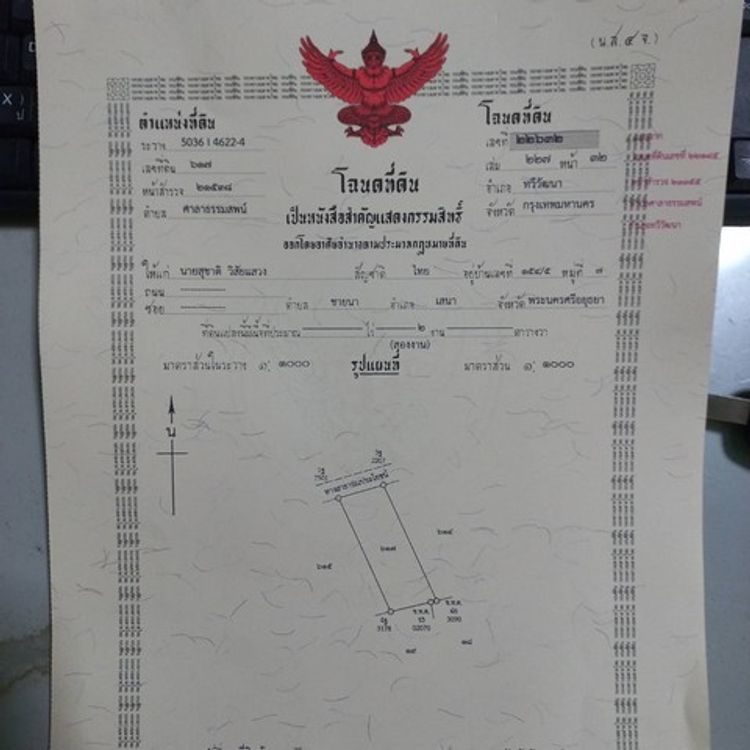 (น.ส. ๔ จ.)
ตำแหน่งที่ดิน
ระวาง 5036 I 4622-4
เลขที่ดิน ๖๑๗
หน้าสำรวจ ๒๑๕๓๘
ตำบล ศาลาธรรมสพน์
โฉนดที่ดิน
เลขที่ ๒๒๖๓๒
เล่ม ๒๒๗ หน้า ๓๒
อำเภอ ทวีวัฒนา
จังหวัด กรุงเทพมหานคร
โฉนดที่ดิน
เป็นหนังสือสำคัญแสดงกรรมสิทธิ์
ออกโดยอาศัยอำนาจตามประมวลกฎหมายที่ดิน
ให้แก่ นายสุชาติ วิสัยแสวง สัญชาติ ไทย อยู่บ้านเลขที่ ๑๕๘/๕ หมู่ที่ ๗
ถนน
ซอย ตำบล ชายนา อำเภอ เสนา จังหวัด พระนครศรีอยุธยา
ที่ดินแปลงนี้มีเนื้อที่ประมาณ ไร่ ๒ งาน ตารางวา
(สองงาน)
มาตราส่วนในระวาง ๑: ๑๐๐๐ รูปแผนที่ มาตราส่วน ๑: ๑๐๐๐
น
ทางสาธารณประโยชน์
๖๑๕ ๖๑๗
๑๙ ๑๘